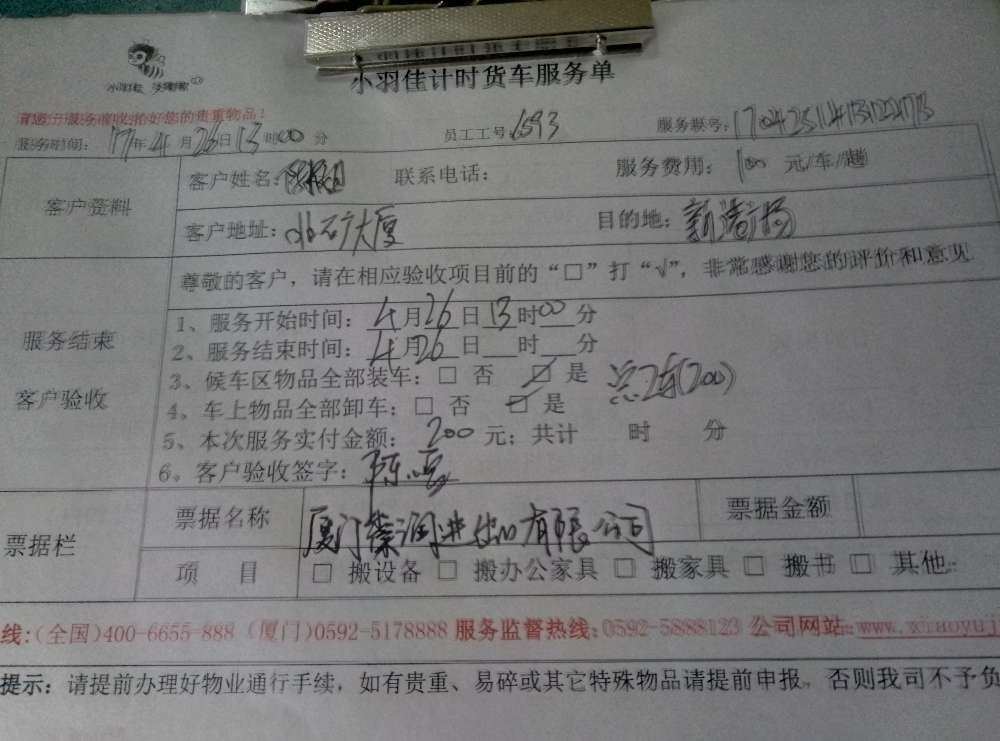 小羽佳计时货车服务单
小羽佳
请您在服务前收拾好您的贵重物品!
服务时间: 17年 4月 26日 13时00分 员工工号: 1693 服务联号:
客户资料
客户姓名: 联系电话: 服务费用: 100 元/车/趟
客户地址: 大厦 目的地: 新港广场
尊敬的客户，请在相应验收项目前的“□”打“√”，非常感谢您的评价和意见
服务结束
客户验收
1、服务开始时间: 4月26日13时00分
2、服务结束时间: 4月26日 时 分
3、候车区物品全部装车: □ 否 □ 是 共2车(200)
4、车上物品全部卸车: □ 否 □ 是
5、本次服务实付金额: 200 元; 共计 时 分
6、客户验收签字: 陈
票据栏
票据名称 厦门 润进出口有限公司 票据金额
项 目 □ 搬设备 □ 搬办公家具 □ 搬家具 □ 搬书 □ 其他:
线:(全国)400-6655-888 (厦门)0592-5178888 服务监督热线:0592-5888123 公司网站:www.xiaoyuj
提示: 请提前办理好物业通行手续, 如有贵重、易碎或其它特殊物品请提前申报, 否则我司不予负